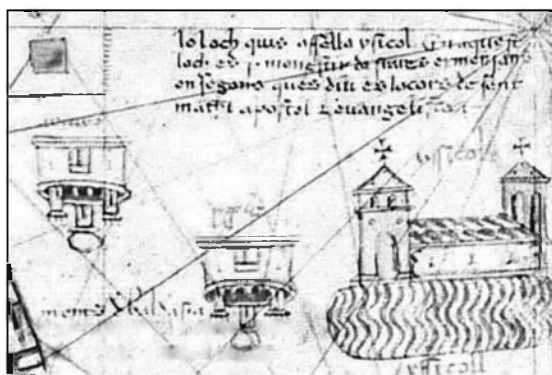 lo loch quis apella ysicol En aquest
loch es j monestir de frares ermenians
on segons ques diu es locors de sent
apostol e evangelista
yssicoll
monts
yssicoll